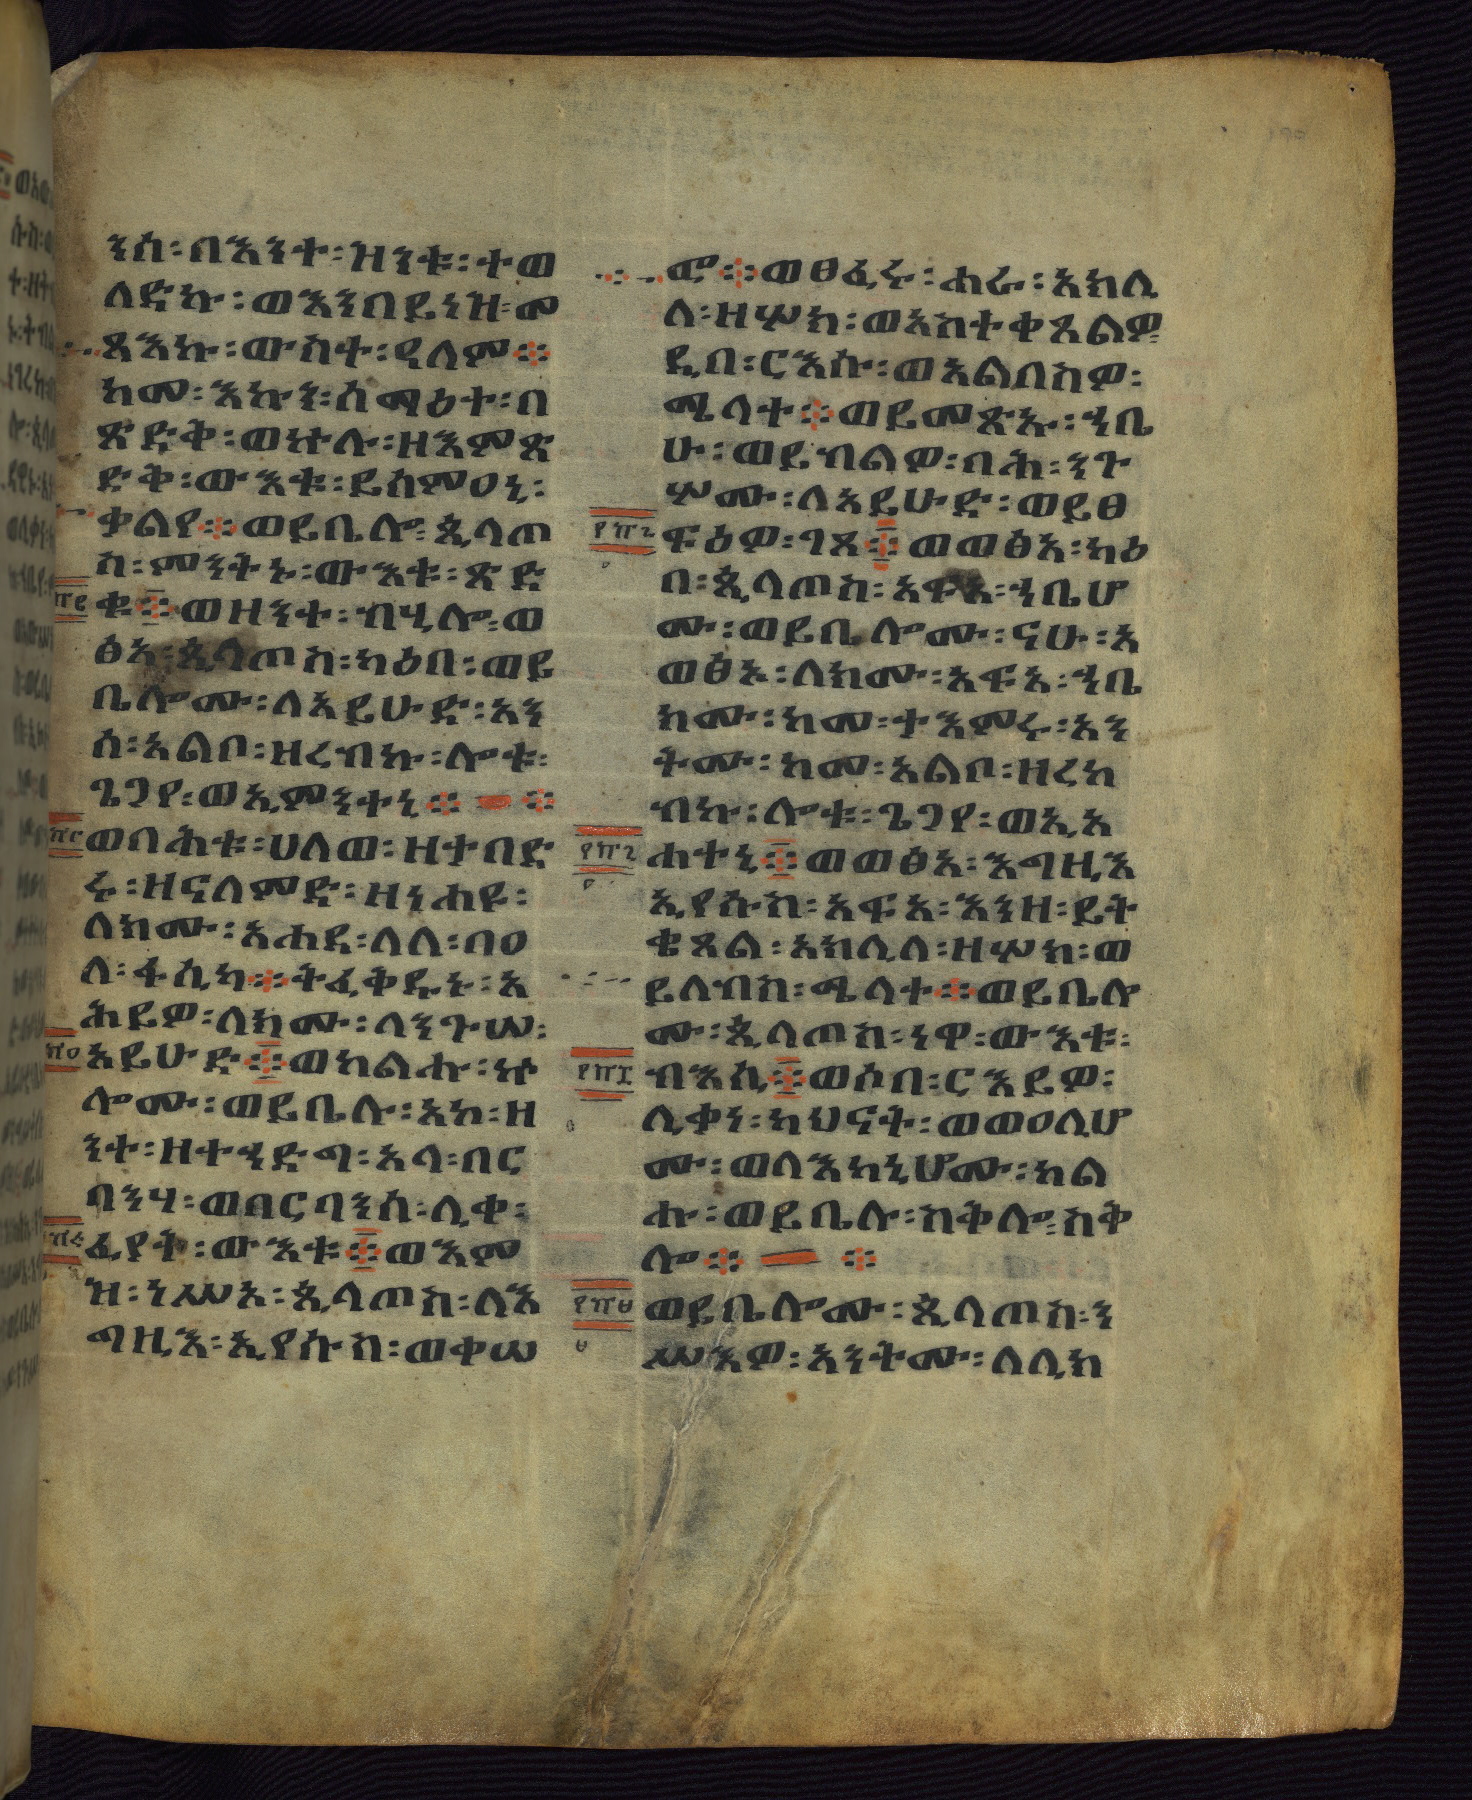 ንሰ፡በእንተ፡ዝንቱ፡ተወ
ለድኩ፡ወእንበይነዝ፡መ
ጻእኩ፡ውስተ፡ዓለም፨
ከመ፡እኩን፡ስማዕተ፡በ
ጽድቅ፡ወኵሉ፡ዘእምጽ
ድቅ፡ውእቱ፡ይሰምዐኒ፡
ቃልየ፨ወይቤሎ፡ጲላጦ
ስ፡ምንትኑ፡ውእቱ፡ጽድ
ቁ፨ወዘንተ፡ብሂሎ፡ወ
ፅአ፡ጲላጦስ፡ካዕበ፡ወይ
ቤሎሙ፡ለአይሁድ፡አን
ሰ፡አልቦ፡ዘረብኩ፡ሎቱ፡
ጌጋየ፡ወኢምንተኒ፨ ፨
ወባሕቱ፡ሀለወ፡ዘተበድ
ሩ፡ዘናለምድ፡ዘነሐዩ፡
ለክሙ፡አሐደ፡ለለ፡በዐ
ለ፡ፋሲካ፨ትፈቅዱኑ፡አ
ሕይዎ፡ለክሙ፡ለንጉሠ፡
አይሁድ፨ወከልሑ፡ኵ
ሎሙ፡ወይቤሉ፡አኮ፡ዘ
ንተ፡ዘተኀድግ፡አላ፡በር
ባንሃ፡ወበርባንስ፡ሊቀ፡
ፈያት፡ውእቱ፨ወእም
ዝ፡ነሥአ፡ጲላጦስ፡ለእ
ግዚእ፡ኢየሱስ፡ወቀሠ
ሮ፨ወፀፈሩ፡ሐራ፡አክሊ
ለ፡ዘሦክ፡ወአስተቀጸልዎ፡
ዲበ፡ርእሱ፡ወአልበስዎ፡
ሜላተ፨ወይመጽኡ፡ኀቤ
ሁ፡ወይብልዎ፡በሕ፡ንጉ
ሦሙ፡ለአይሁድ፡ወይፀ
ፍዕዎ፡ገጸ፨ወወፅአ፡ካዕ
በ፡ጲላጦስ፡አፍአ፡ኀቤሆ
ሙ፡ወይቤሎሙ፡ናሁ፡አ
ወፅኦ፡ለክሙ፡አፍአ፡ኀቤ
ክሙ፡ከመ፡ተእምሩ፡አን
ትሙ፡ከመ፡አልቦ፡ዘረከ
ብኩ፡ሎቱ፡ጌጋየ፡ወኢአ
ሐተኒ፨ወወፅአ፡እግዚእ
ኢየሱስ፡አፍአ፡እንዘ፡ይት
ቄጸል፡አክሊለ፡ዘሦክ፡ወ
ይለብስ፡ሜላተ፨ወይቤሎ
ሙ፡ጲላጦስ፡ነዋ፡ውእቱ፡
ብእሲ፨ወሶበ፡ርእይዎ፡
ሊቀነ፡ካህናት፡ወወዐሊሆ
ሙ፡ወለእከኒሆሙ፡ከል
ሑ፡ወይቤሉ፡ስቅሎ፡ስቅ
ሎ፨ ፨
ወይቤሎሙ፡ጲላጦስ፡ን
ሥእዎ፡አንትሙ፡ለሊክ